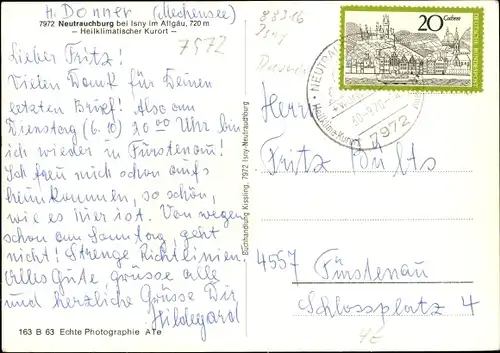 H. Donner (Meckensee)
7972 Neutrauchburg bei Isny im Allgäu, 720 m
— Heilklimatischer Kurort —
7972
Lieber Fritz!
Vielen Dank für Deinen
letzten Brief! Also am
Dienstag (6.10) 20.00 Uhr bin
ich wieder in Fürstenau!
Ich freu mich schon aufs
heimkommen, so schön,
wie es hier ist. Von wegen
schon am Sonntag, geht
nicht! Strenge Richtlinien.
Alles Gute, Grüsse alle
und herzliche Grüsse Dir
Hildegard
163 B 63 Echte Photographie ATe
Buchhandlung Kissling, 7972 Isny-Neutrauchburg
88316
Isny
20 Cochem
7972
Herrn
Fritz Bülts
4557 Fürstenau
Schlossplatz 4
4€